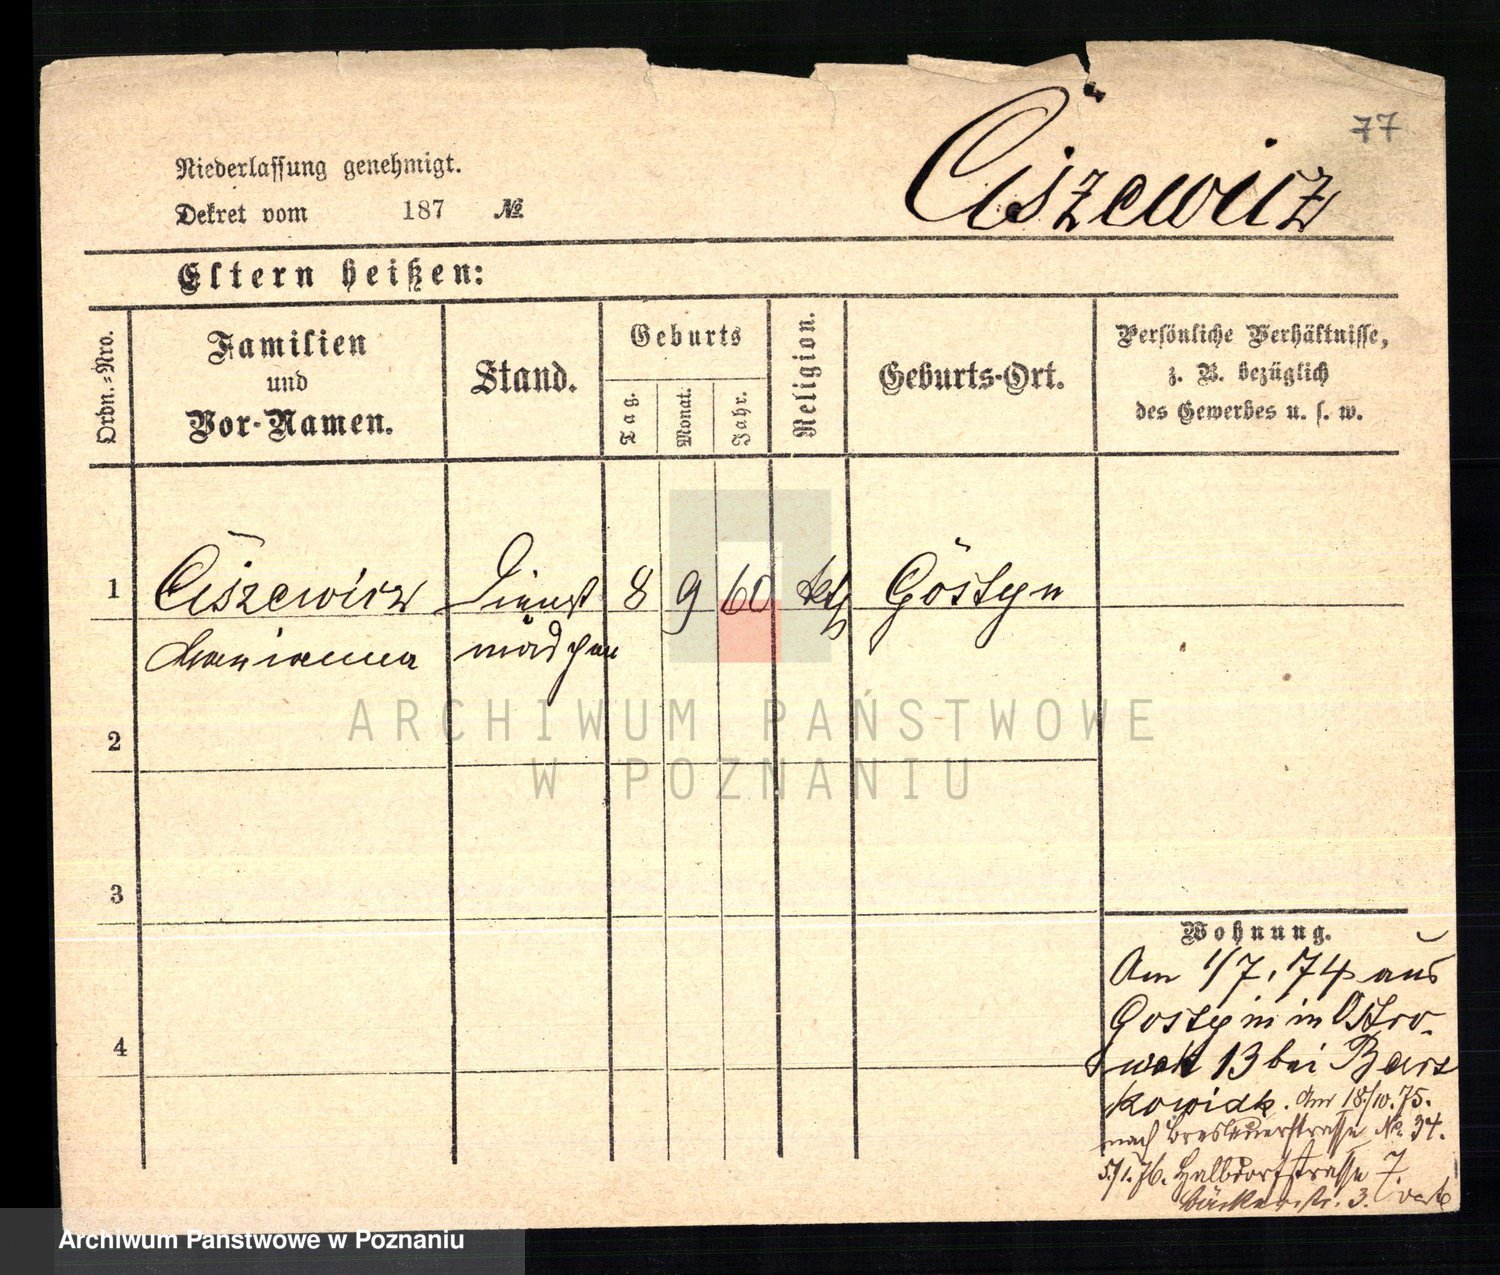 77
Niederlassung genehmigt.
Dekret vom 187 №
Ciszewicz
Eltern heißen:
Ordn.=Nro.
Familien
und
Vor-Namen.
Stand.
Geburts
Tag.
Monat.
Jahr.
Religion.
Geburts-Ort.
Persönliche Verhältnisse,
z. B. bezüglich
des Gewerbes u. s. w.
1
Ciszewicz Dienst 8 9 60 kth Göstyn
Marianna mädchen
2
3
4
Wohnung.
Am 1/7. 74 aus
Gostyn in Ostro-
wek 13 bei
Am 18/10. 75.
nach Breslauerstrasse № 34.
5/1. 76. Halbdorfstrasse 7.
Bäckerstr. 3.
ARCHIWUM PAŃSTWOWE
W POZNANIU
Archiwum Państwowe w Poznaniu